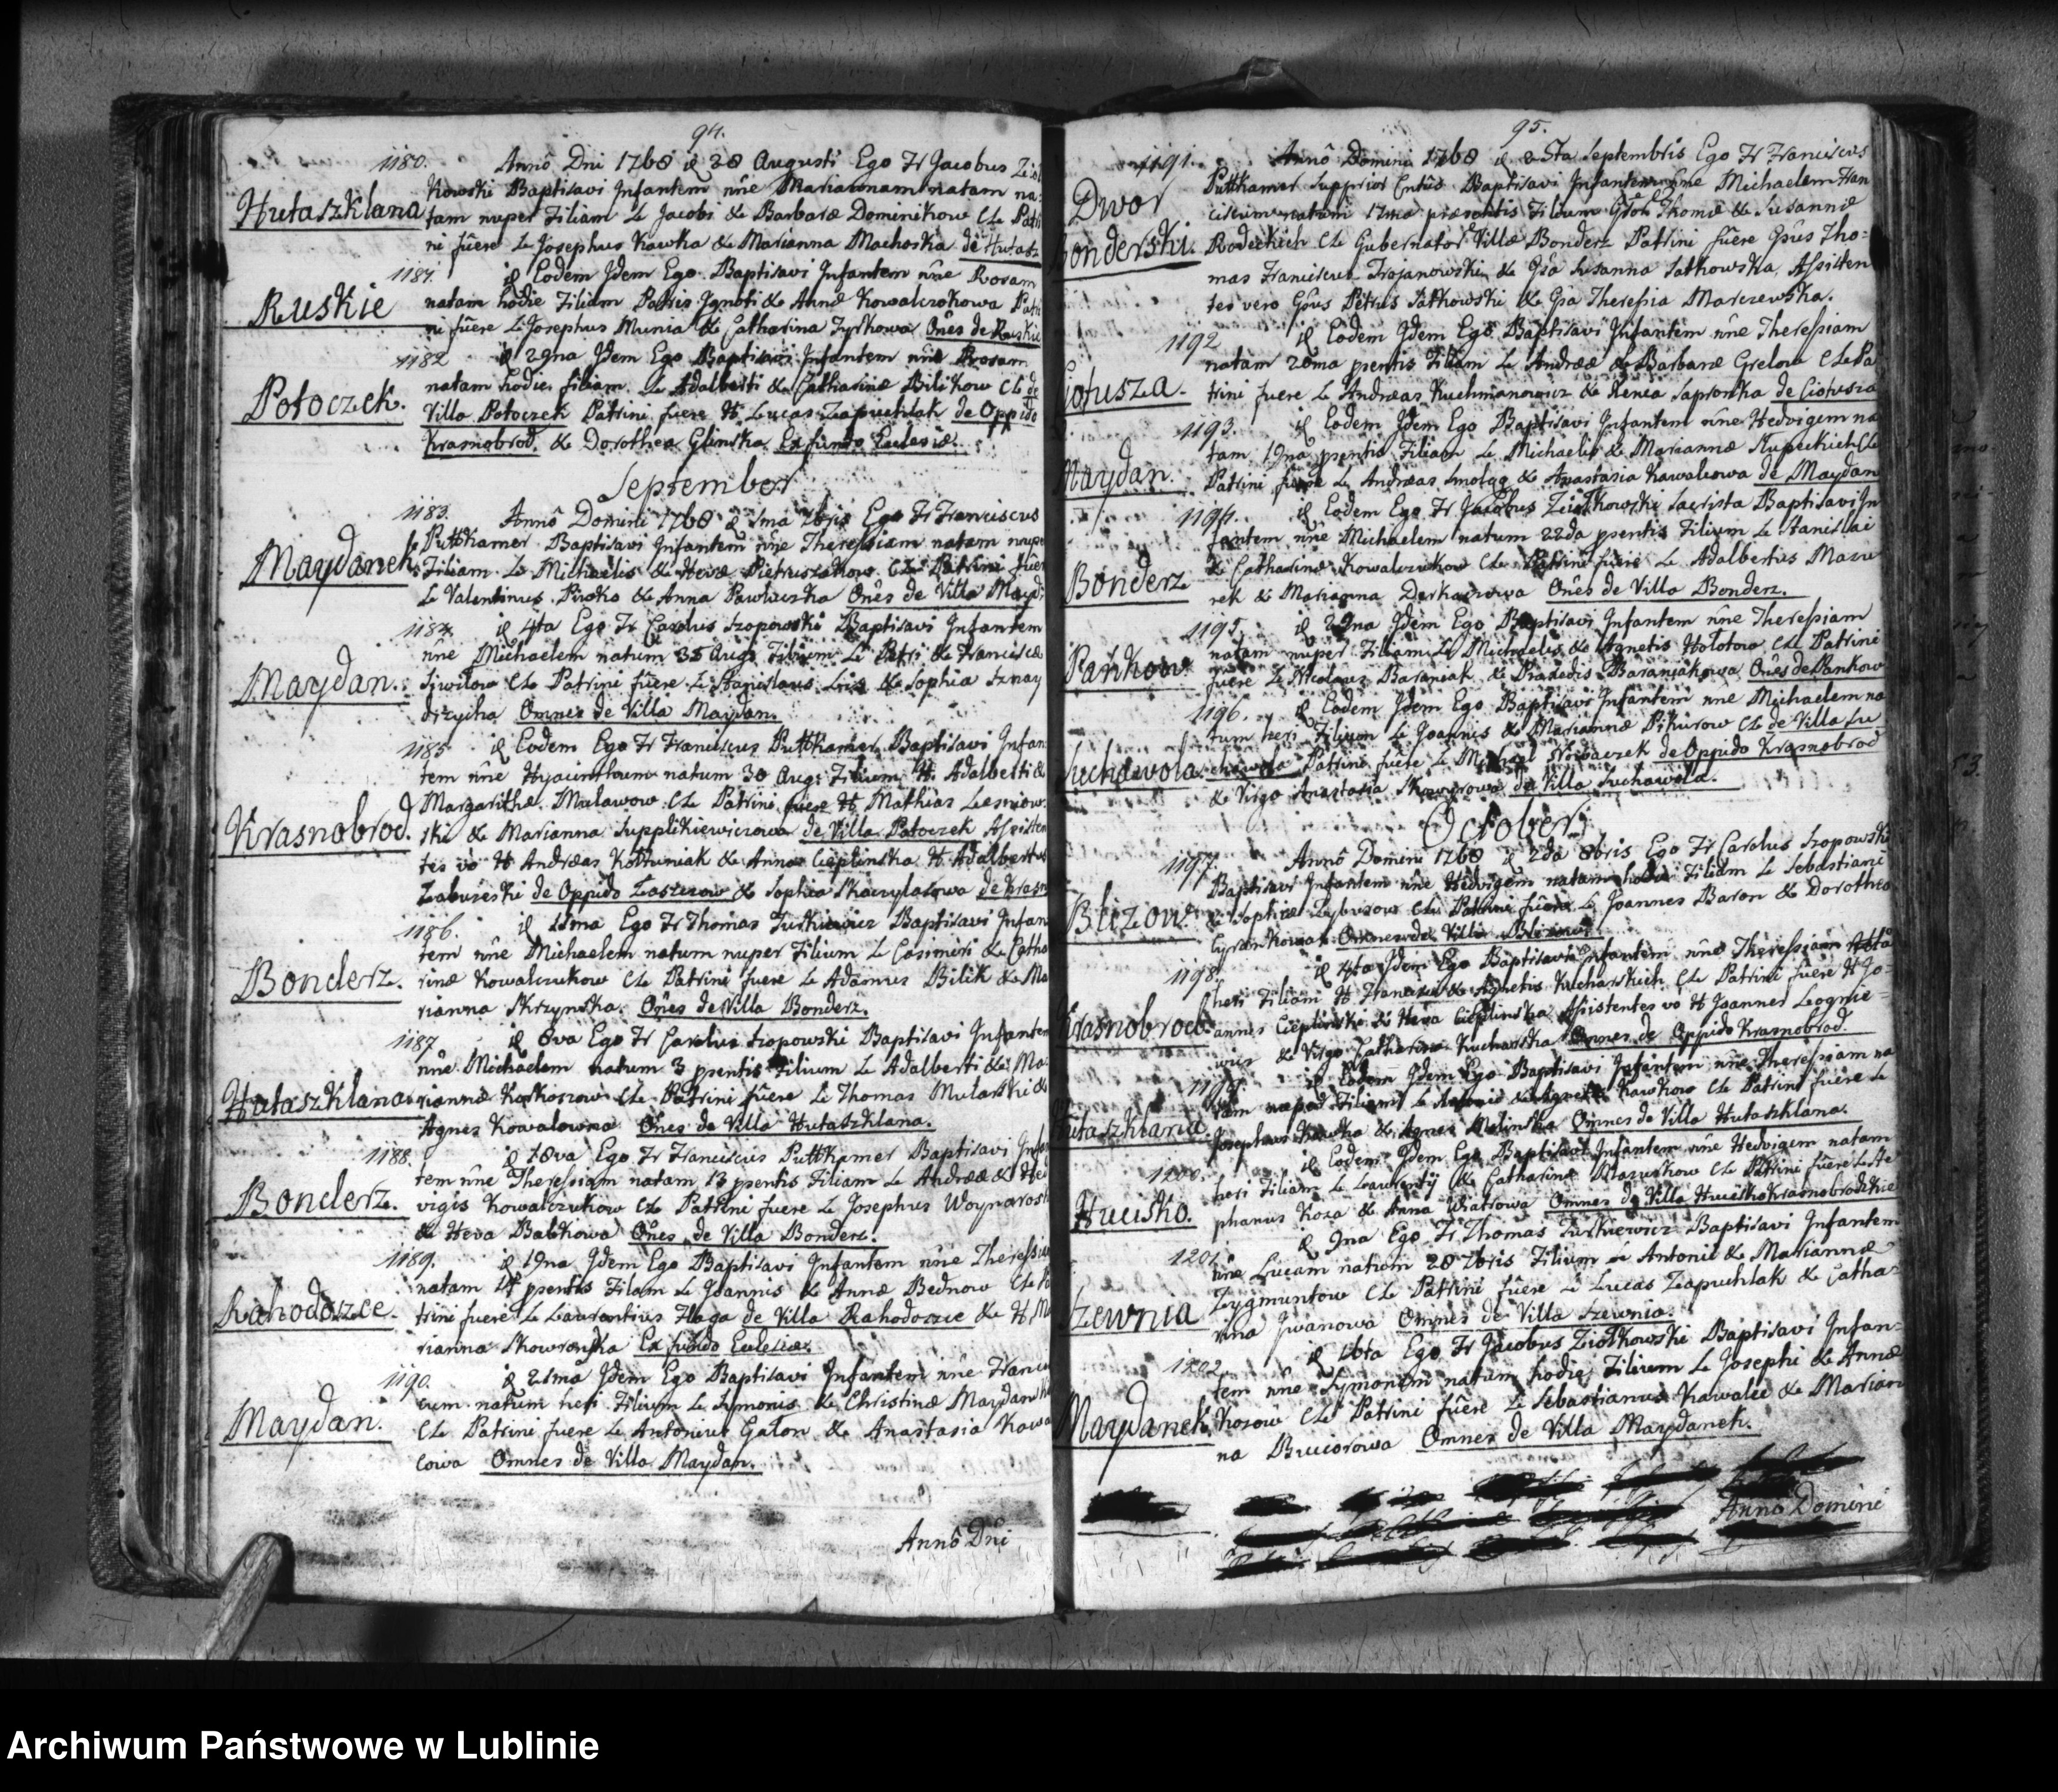 94.
1180. Annô Dni 1768 d 28 Augusti Ego Fr Jacobus
Hutaszklana
kowski Baptisavi Infantem nn̂e Mariannam natam
tam nuper Filiam L. Jacobi & Barbaræ Dominikow C.L. Patri
ni fûere L Josephus Kawka & Marianna Machoska de Hutasz
1181. d Eodem Idem Ego Baptisavi Infantem nn̂e Rosam
Ruskie
natam hodie Filiam Patris Ignoti & Annæ Kowalczokowa Patri
ni fûere L Josephus Munia & Catharina Tyrkowa On̂es de Ruskie
1182 d 29na Idem Ego Baptisavi Infantem nn̂e Rosam
Potoczek.
natam hodie, filiam L Adalberti & Catharinæ Bilikow C L de
Villa Potoczek Patrini fuere H Lucas Zapuchlak de Oppido
Krasnobrod. & Dorothea Glinska Ex fundo Ecclesiæ.
September
1183. Annô Domini 1768 d 1ma 7bris Ego Fr Franciscus
Maydanek
Puttkamer Baptisavi Infantem nn̂e Theressiam natam nuper
Filiam L Michaelis & Hevæ Pietruszakow C L Patrini fûere
L Valentinus Piroko & Anna Pawluczka On̂es de Villa Mayd:
1184. d 4ta Ego Fr Carolus Szopowski Baptisavi Infantem
Maydan.
nn̂e Michaelem natum 35 Aug: Filium L Petri & Franciscæ
C L Patrini fûere L Stanislaus & Sophia Sznay
drzycha Omnes de Villa Maydan.
1185 d Eodem Ego Fr Franciscus Puttkamer Baptisavi Infan
tem nn̂e Hyacinthum natum 30 Aug: Filium H. Adalberti &
Krasnobrod.
Margarithæ Mulawow C L Patrini fuere H Mathias Lesniow
ski & Marianna Supplikiewiczowa de Villa Potoczek Assisten
tes vo H Andreas Kołtuniak & Anna Cieplinska H Adalbertus
Zabureski de Oppido Łaszczow & Sophia Skarzylasowa de Krasn
1186. d 11ma Ego Fr Thomas Jurkiewicz Baptisavi Infan
Bonderz.
tem nn̂e Michaelem natum nuper Filium L Casimiri & Catha
rinæ Kowalczukow C L Patrini fuere L Adamus Bilik & Ma
rianna Skrzynska. On̂es de Villa Bonderz.
1187 d 8va Ego Fr Carolus Szopowski Baptisavi Infantem
Hutaszklana
nn̂e Michaelem natum 3 psentis Filium L Adalberti & Ma
riannæ Korkoszow C L Patrini fûere L Thomas Mularski &
Agnes Kowalowna On̂es de Villa Hutaszklana.
1188. d 18va Ego Fr Franciscus Puttkamer Baptisavi Infan
Bonderz.
tem nn̂e Theressiam natam 13 psentis Filiam L Andreæ & Hed
vigis Kowalczukow C L Patrini fuere L Josephus Woynarosk
& Heva Babkowa On̂es de Villa Bonderz.
1189. d 19na Idem Ego Baptisavi Infantem nn̂e Theressiam
Rahodoszce.
natam 14 psentis Filiam L Joannis & Annæ Bednow C L Pa
trini fuere L Laurentius Flaga de Villa Rahodoszce & H Ma
rianna Skowronska Ex fundo Ecclesiæ.
1190. d 21ma Idem Ego Baptisavi Infantem nn̂e Francis
Maydan.
cum natum heri Filium L Symonis & Christinæ Maydansk
C L Patrini fuere L Antonius Gałon & Anastasia Kowa
lowa Omnes de Villa Maydan.
Annô Dni
95.
1191. Annô Domini 1768 d 25ta Septembris Ego Fr Franciscus
Dwor
Bonderski.
Puttkamer Supprior Cntûs Baptisavi Infantem nn̂e Michaelem Fran
ciscum natum 17ma præsentis Filium Thomæ & Susannæ
Rodeckich C L Gubernator Villæ Bonderz Patrini fûere Gsûs Tho-
mas Franciscus Trojanowski & Gsa Susanna Satkowska, Assisten
tes vero Gsûs Petrus Satkowski & Gsa Theressia Marczewska.
1192 d Eodem Idem Ego Baptisavi Infantem nn̂e Theressiam
Ciotusza.
natam 20ma psentis Filiam L Andreæ & Barbaræ Grelow C L Pa
trini fuere L Andreas Kuchmanowicz & Xenia Sapronka de Ciotusza
1193. d Eodem Idem Ego Baptisavi Infantem nn̂e Hedvigem na
Maydan.
tam 19na psentis Filiam L Michaelis & Mariannæ Kupeckich C L
Patrini fuere L Andreas Smolag & Anastasia Kawalcowa de Maydan
1194. d Eodem Ego Fr Jacobus Ziolkowski Sacrista Baptisavi In
Bonderz
fantem nn̂e Michaelem natum 22da psentis Filium L Stanislai
& Catharinæ Kowalczukow C L Patrini fuere L Adalbertus Mazu
rek & Marianna Derkaczowa On̂es de Villa Bonderz.
1195. d 29na Idem Ego Baptisavi Infantem nn̂e Theressiam
Pańkow
natam nuper Filiam L Michaelis & Agnetis Hołotow C L Patrini
fuere L Nicolaus Baraniak & Praxedis Baraniakowa On̂es de Pankow
1196. d Eodem Idem Ego Baptisavi Infantem nn̂e Michaelem na
Suchawola.
tum heri Filium L Joannis & Mariannæ Pikurow C L de Villa Su
chawola Patrini fuere L Michael Nowaczek de Oppido Krasnobrod
& Virgo Anastasia Skowrowa de Villa Suchawola.
October
1197. Annô Domini 1768 d 2da 8bris Ego Fr Carolus Szopowski
Blizow.
Baptisavi Infantem nn̂e Hedvigem natam hodie Filiam L Sebastiani
& Sophiæ Zybusow C L Patrini fûere L Joannes Baron & Dorothea
Cyrankowa Omnes de Villa Blizow.
1198. d 4ta Idem Ego Baptisavi Infantem nn̂e Theressiam
Krasnobrod.
heri Filiam H Francisci & Agnetis Kucharskich C L Patrini fûere H Jo-
annes Cieplinski & Heva Cieplinska Assistentes vo H Joannes Leognie-
wicz & Virgo Catharina Kucharska Omnes de Oppido Krasnobrod.
1199. d Eodem Idem Ego Baptisavi Infantem nn̂e Theressiam na
Hutaszklana.
tam nuper Filiam L Antonii & Agnetis Kawkow C L Patrini fuere L
Josephus Kawka & Agnes Molinska Omnes de Villa Hutaszklana.
1200. d Eodem Idem Ego Baptisavi Infantem nn̂e Hedvigem natam
Hucisko.
heri Filiam L Laurentij & Catharinæ Płazuskow C L Patrini fûere L Ste
phanus Koza & Anna Wiatrowa Omnes de Villa Hucisko Krasnobrodzkie
1201 d 9na Ego Fr Thomas Jurkiewicz Baptisavi Infantem
Szewnia
nn̂e Lucam natum 28 7bris Filium L Antonii & Mariannæ
Zygmuntow C L Patrini fûere L Lucas Zapuchlak & Catha-
rina Jwanowa Omnes de Villa Szewnia.
1202. d 16ta Ego Fr Jacobus Ziolkowski Baptisavi Infan-
Maydanek
tem nn̂e Symonem natum hodie, Filium L Josephi & Annæ
Kozow C L Patrini fûere L Sebastianus Kawalec & Marian
na Bruciorowa Omnes de Villa Maydanek.
Annô Domini
Archiwum Państwowe w Lublinie